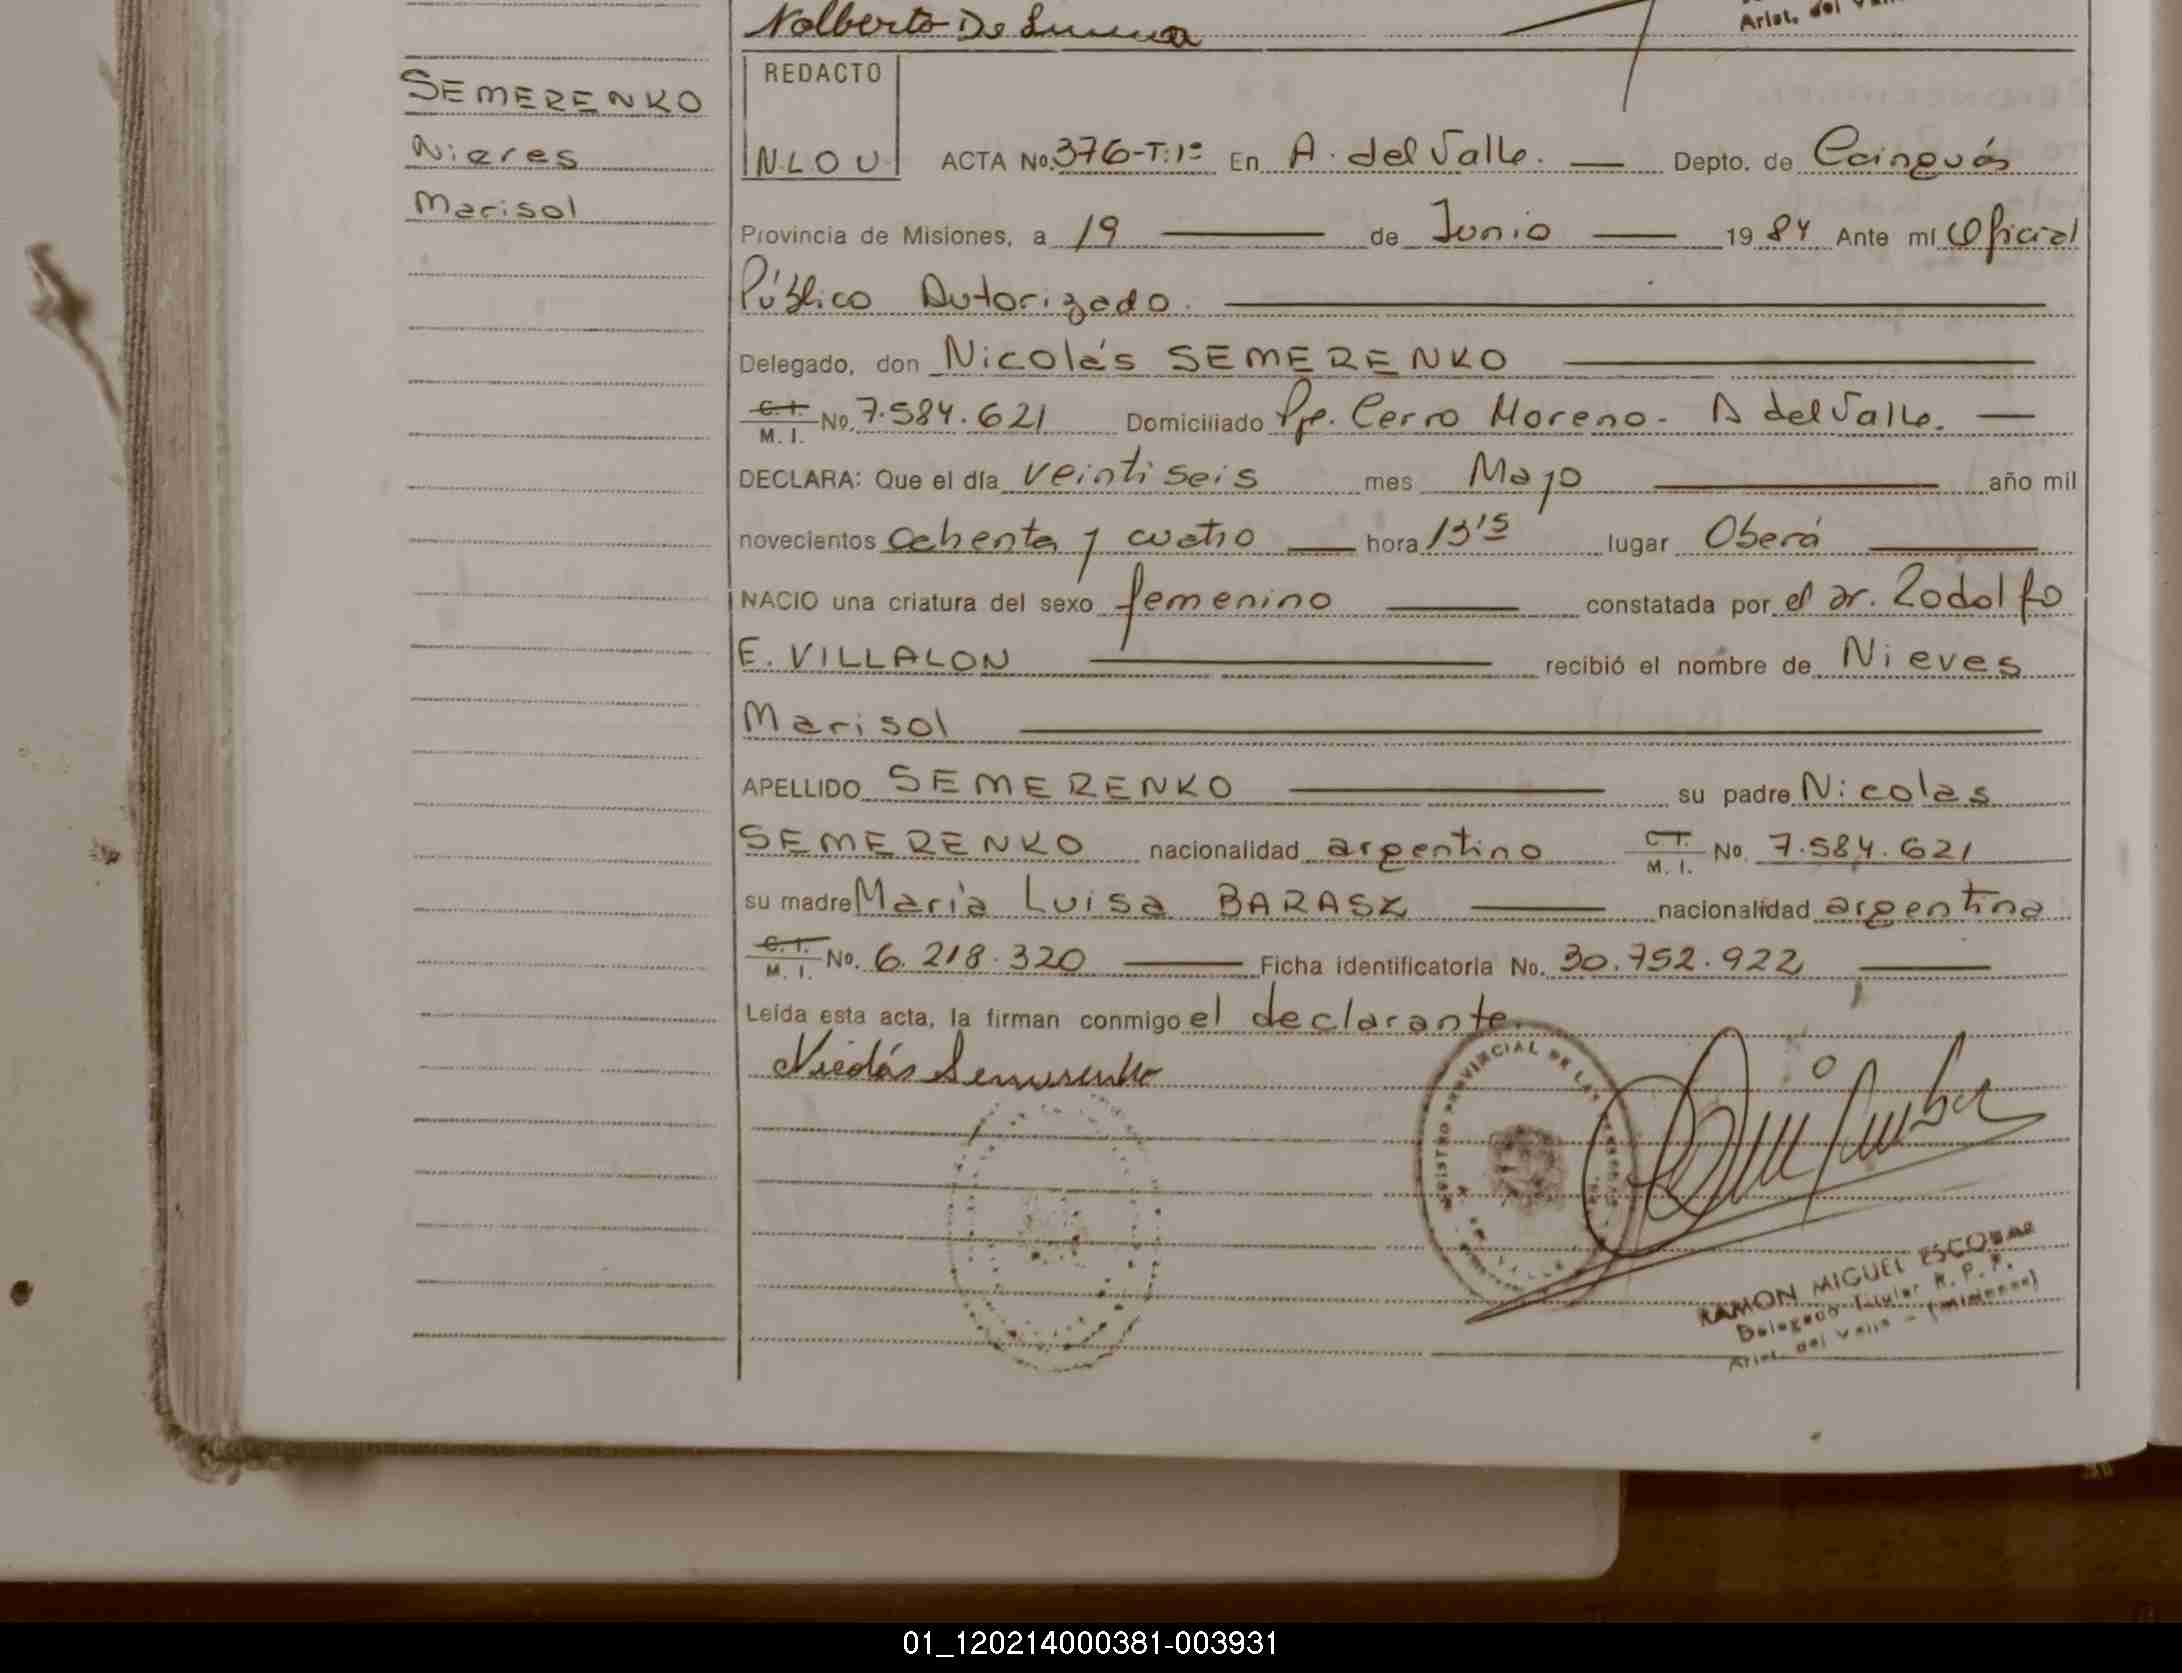 Nolberto De
Arist. del
SEMERENKO
Nieves
Marisol
REDACTO
N.L.O U
ACTA No. 376-T:1º En A. del Valle. Depto. de Cainguás
Provincia de Misiones, a 19 de Junio 1984 Ante mí Oficial
Público Autorizado.
Delegado, don Nicolás SEMERENKO
C. I. M. I. No. 7.584.621 Domiciliado Pje. Cerro Moreno - A del Valle.
DECLARA: Que el día veintiseis mes Mayo año mil
novecientos ochenta y cuatro hora 13¹⁵ lugar Oberá
NACIO una criatura del sexo femenino constatada por el Dr. Rodolfo
E. VILLALON recibió el nombre de Nieves
Marisol
APELLIDO SEMERENKO su padre Nicolas
SEMERENKO nacionalidad argentino C. I. M. I. No. 7.584.621
su madre María Luisa BARASZ nacionalidad argentina
C. I. M. I. No. 6.218.320 Ficha identificatoria No. 30.752.922
Leída esta acta, la firman conmigo el declarante.
Nicolás Semerenko
REGISTRO PROVINCIAL DE LAS PERSONAS
VALLE
RAMON MIGUEL ESCOBAR
Delegado Titular R. P. P.
Arist. del Valle - (Misiones)
01_120214000381-003931